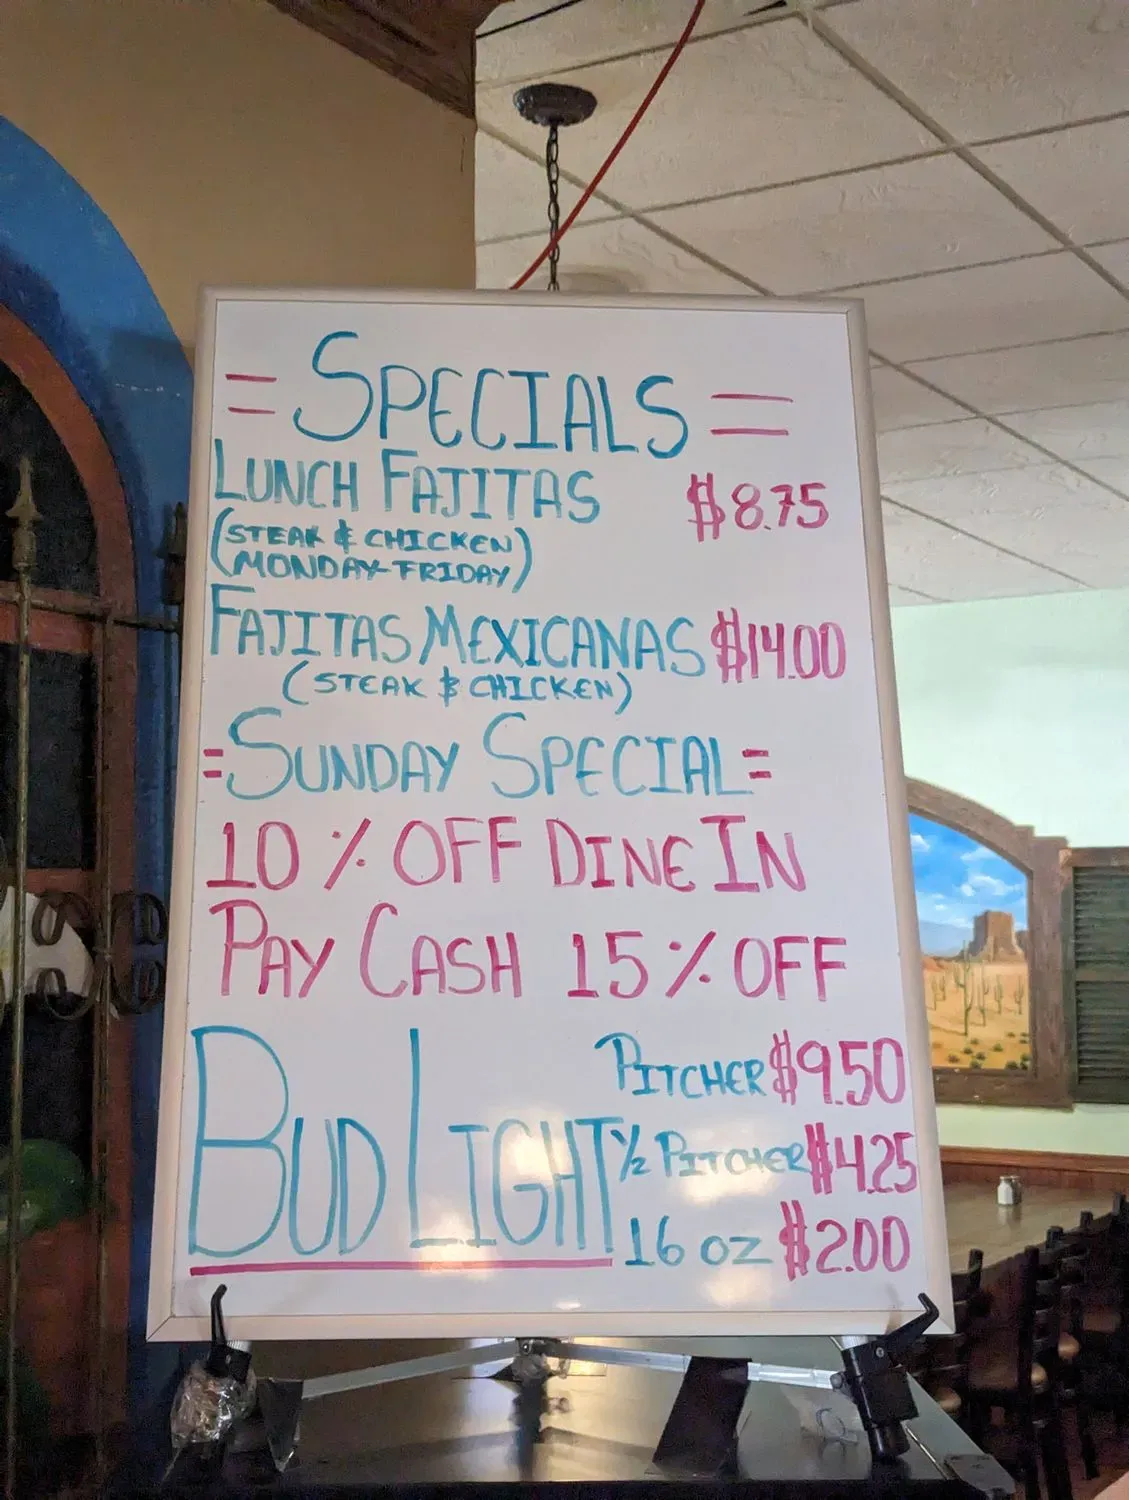 = SPECIALS =
LUNCH FAJITAS $8.75
(STEAK & CHICKEN)
(MONDAY-FRIDAY)
FAJITAS MEXICANAS $14.00
(STEAK & CHICKEN)
=SUNDAY SPECIAL=
10% OFF DINE IN
PAY CASH 15% OFF
BUD LIGHT
PITCHER $9.50
½ PITCHER $4.25
16 OZ $2.00